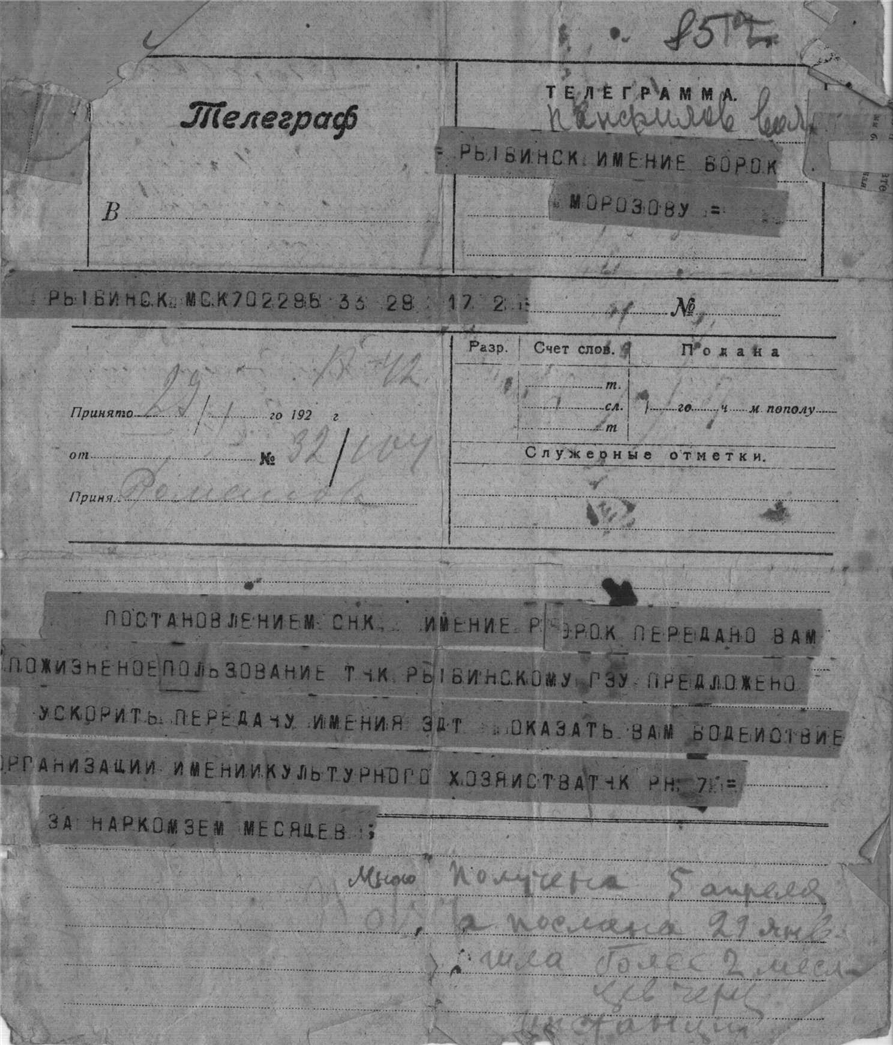 Телеграф
В
ТЕЛЕГРАММА.
= РЫБИНСК ИМЕНИЕ БОРОК
МОРОЗОВУ =
РЫБИНСК МСК702286 33 28 17 2
№
Разр. Счет слов. Подана
т.
сл. го ч м пополу
т
Служебные отметки.
Принято 29/I го 192 г
от № 32/104
Приня. Романова
ПОСТАНОВЛЕНИЕМ СНК ИМЕНИЕ Р ОРОК ПЕРЕДАНО ВАМ
ПОЖИЗНЕНОЕ ПОЛЬЗОВАНИЕ ТЧК РЫБИНСКОМУ ГЗУ ПРЕДЛОЖЕНО
УСКОРИТЬ ПЕРЕДАЧУ ИМЕНИЯ ЗПТ ОКАЗАТЬ ВАМ ВОДЕЙСТВИЕ
ОРГАНИЗАЦИИ ИМЕНИИКУЛЬТУРНОГО ХОЗЯИСТВАТЧК РН 7 =
ЗА НАРКОМЗЕМ МЕСЯЦЕВ ;
Мною Получена 5 апреля
а послана 29 янв.
шла более 2 меся-
цев через
инстанции